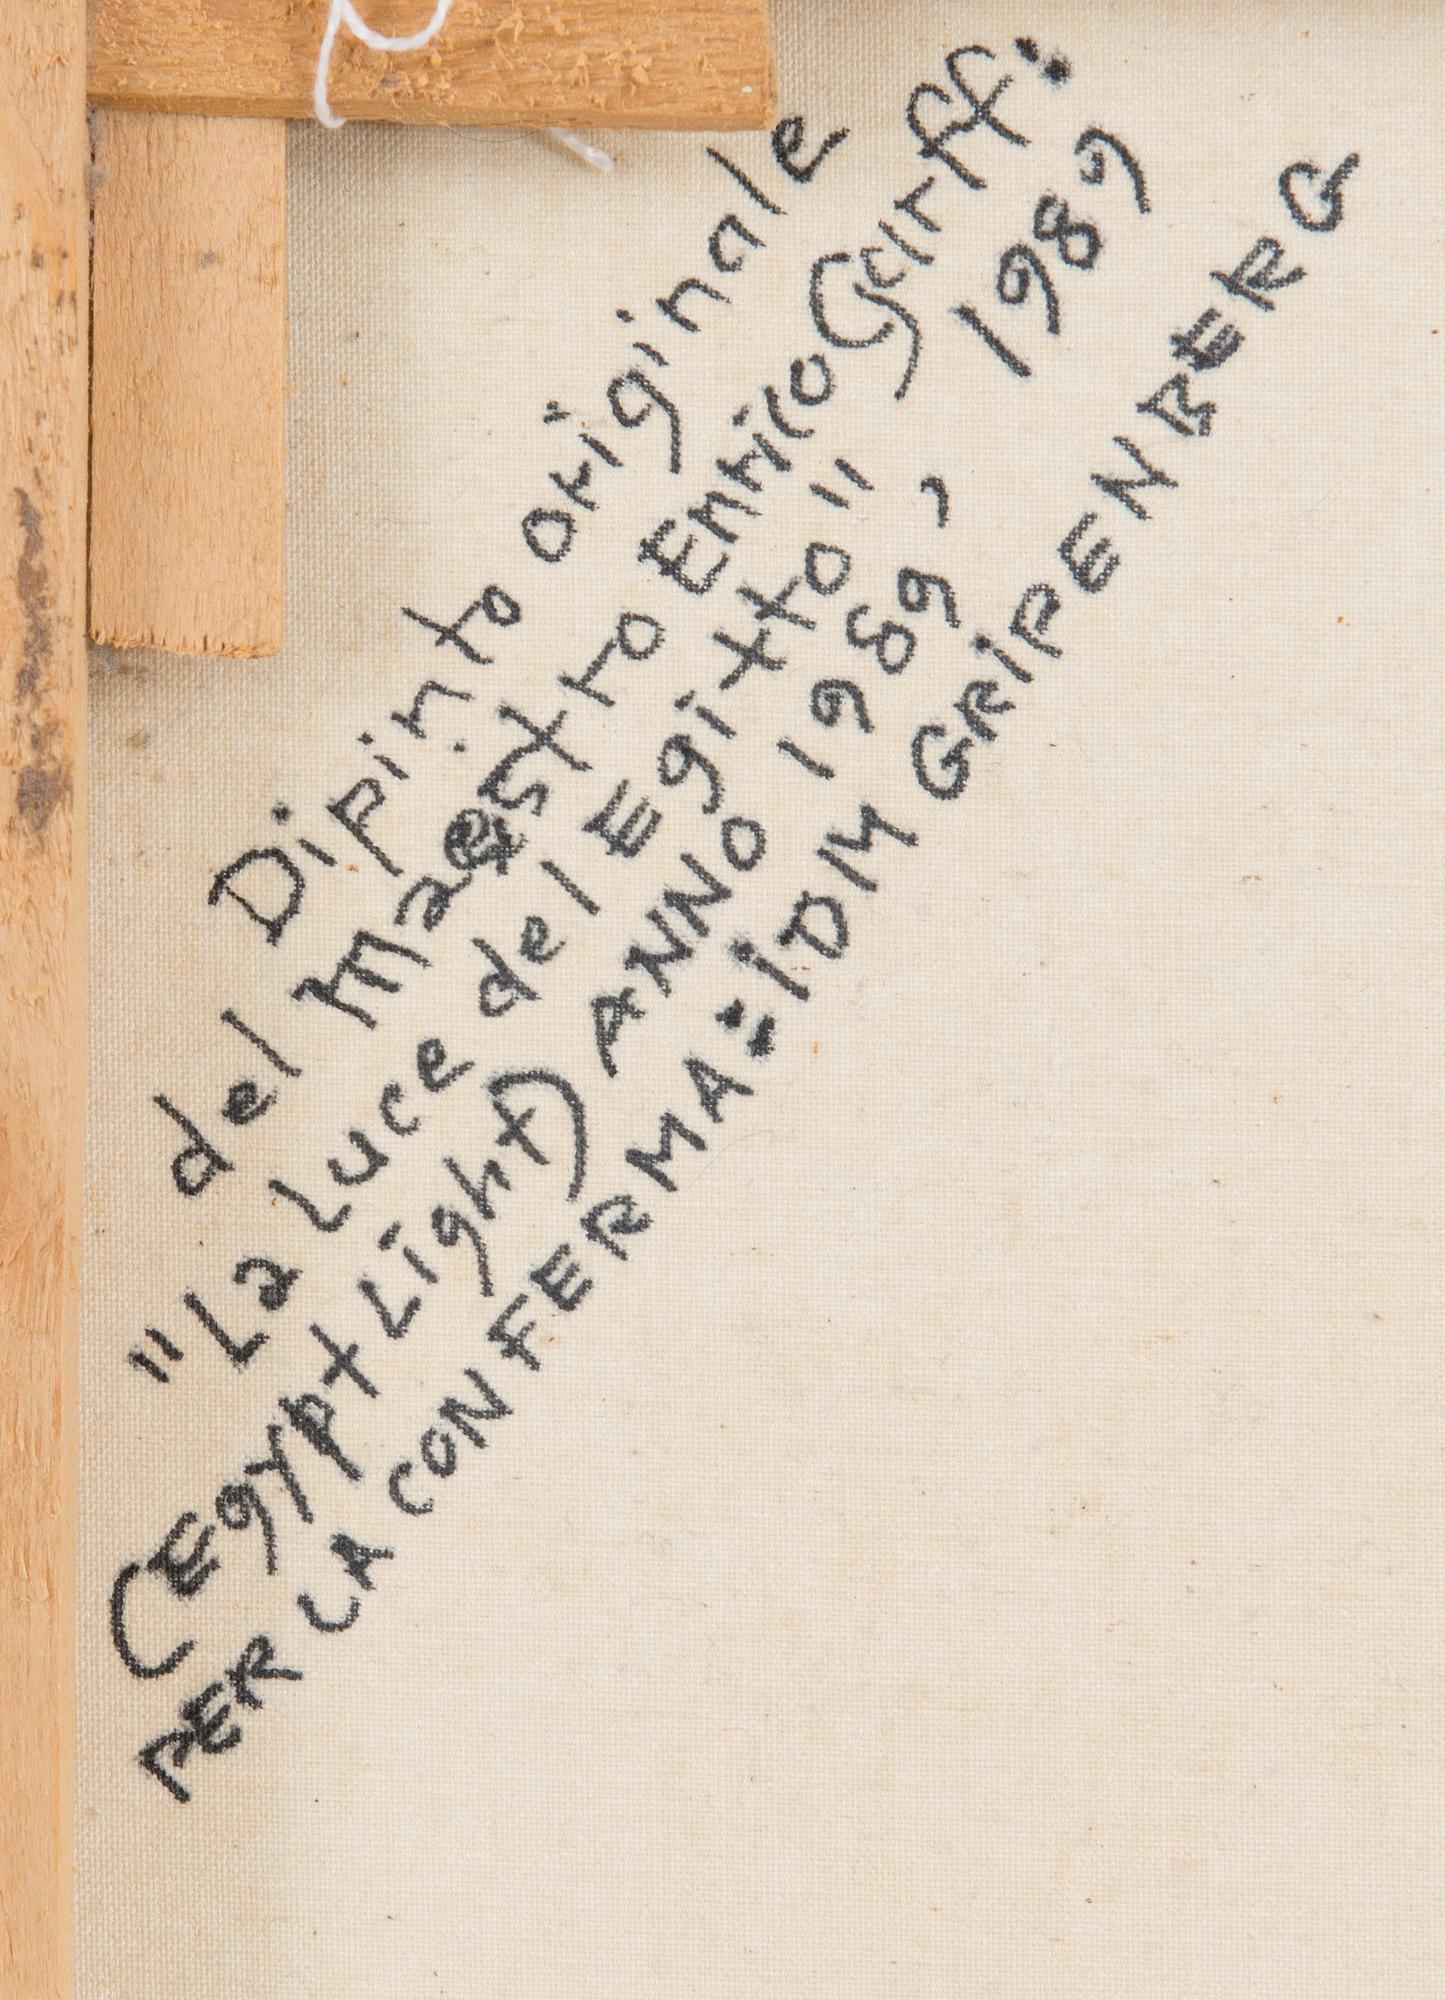 Dipinto originale
del Maestro Enrico Garff:
"La Luce del Egitto" 1989
(Egypt Light) ANNO 1989,
PER LA CONFERMA: IDM GRIPENBERG